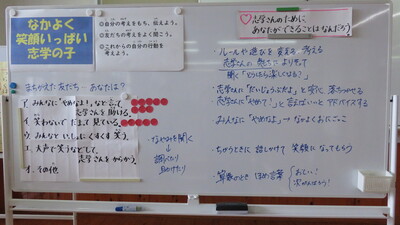 なかよく
笑顔いっぱい
志学の子
◎自分の考えをもち、伝えよう。
◎友だちの考えをよく聞こう。
◎これからの自分の行動を
考えよう。
志学さんのために、
あなたができることはなんだろう
まちがえた友だち…あなたは?
ア、みんなに「やめなよ」などと言って
志学さんを助ける。
イ、笑わないで だまって見ている。
ウ、みんなといっしょにくすくす笑う。
エ、大声で笑うなどして、
志学さんをからかう。
オ、その他
・なやみを聞く
↓
助けたり
・ルールや遊びを変える 考える
志学さんの
聞く
・志学さんに「だいじょうぶだよ」と
志学さんに「やめて!」と言えばいいとアドバイスする
・みんなに「やめなよ」→ なかよくおにごっこ
・ちがうときに 話しかけて 笑顔になってもらう
・算数のとき ほめ言葉
おしい!
次がんばろう!